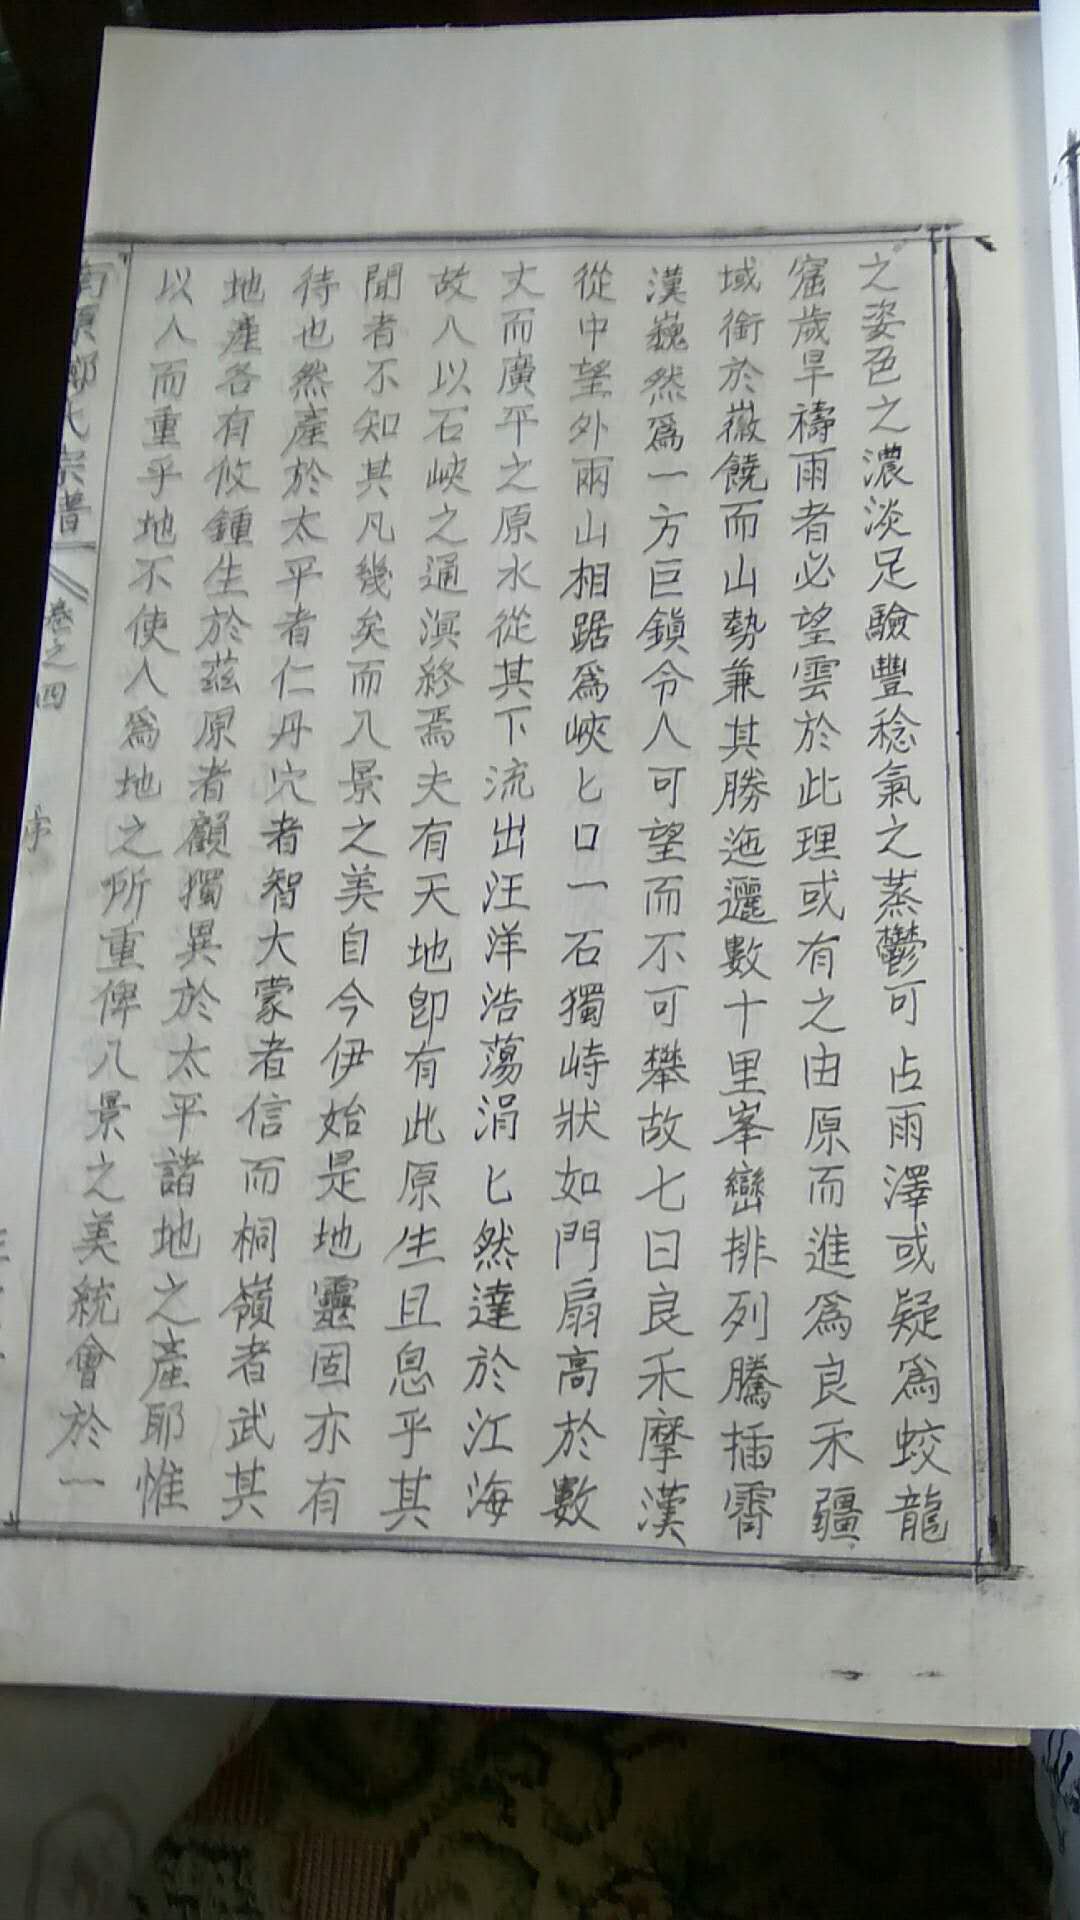 之姿色之濃淡足驗豐稔氣之蒸鬱可占雨澤或疑爲蛟龍
窟歲旱禱雨者必望雲於此理或有之由原而進爲良禾疆
域銜於嶶饒而山勢兼其勝迤邐數十里峯巒排列騰插霄
漢巍然爲一方巨鎮令人可望而不可攀故七曰良禾摩漢
從中望外兩山相踞爲峽匕口一石獨峙狀如門扇高於數
丈而廣平之原水從其下流出汪洋浩蕩涓匕然達於江海
故八以石峽之通溟終焉夫有天地卽有此原生且息乎其
間者不知其凡幾矣而八景之美自今伊始是地靈固亦有
待也然產於太平者仁丹穴者智大蒙者信而桐嶺者武其
地產各有攸鍾生於茲原者顧獨異於太平諸地之產耶惟
以人而重乎地不使人爲地之所重俾八景之美統會於一
氏宗譜
卷之四
序